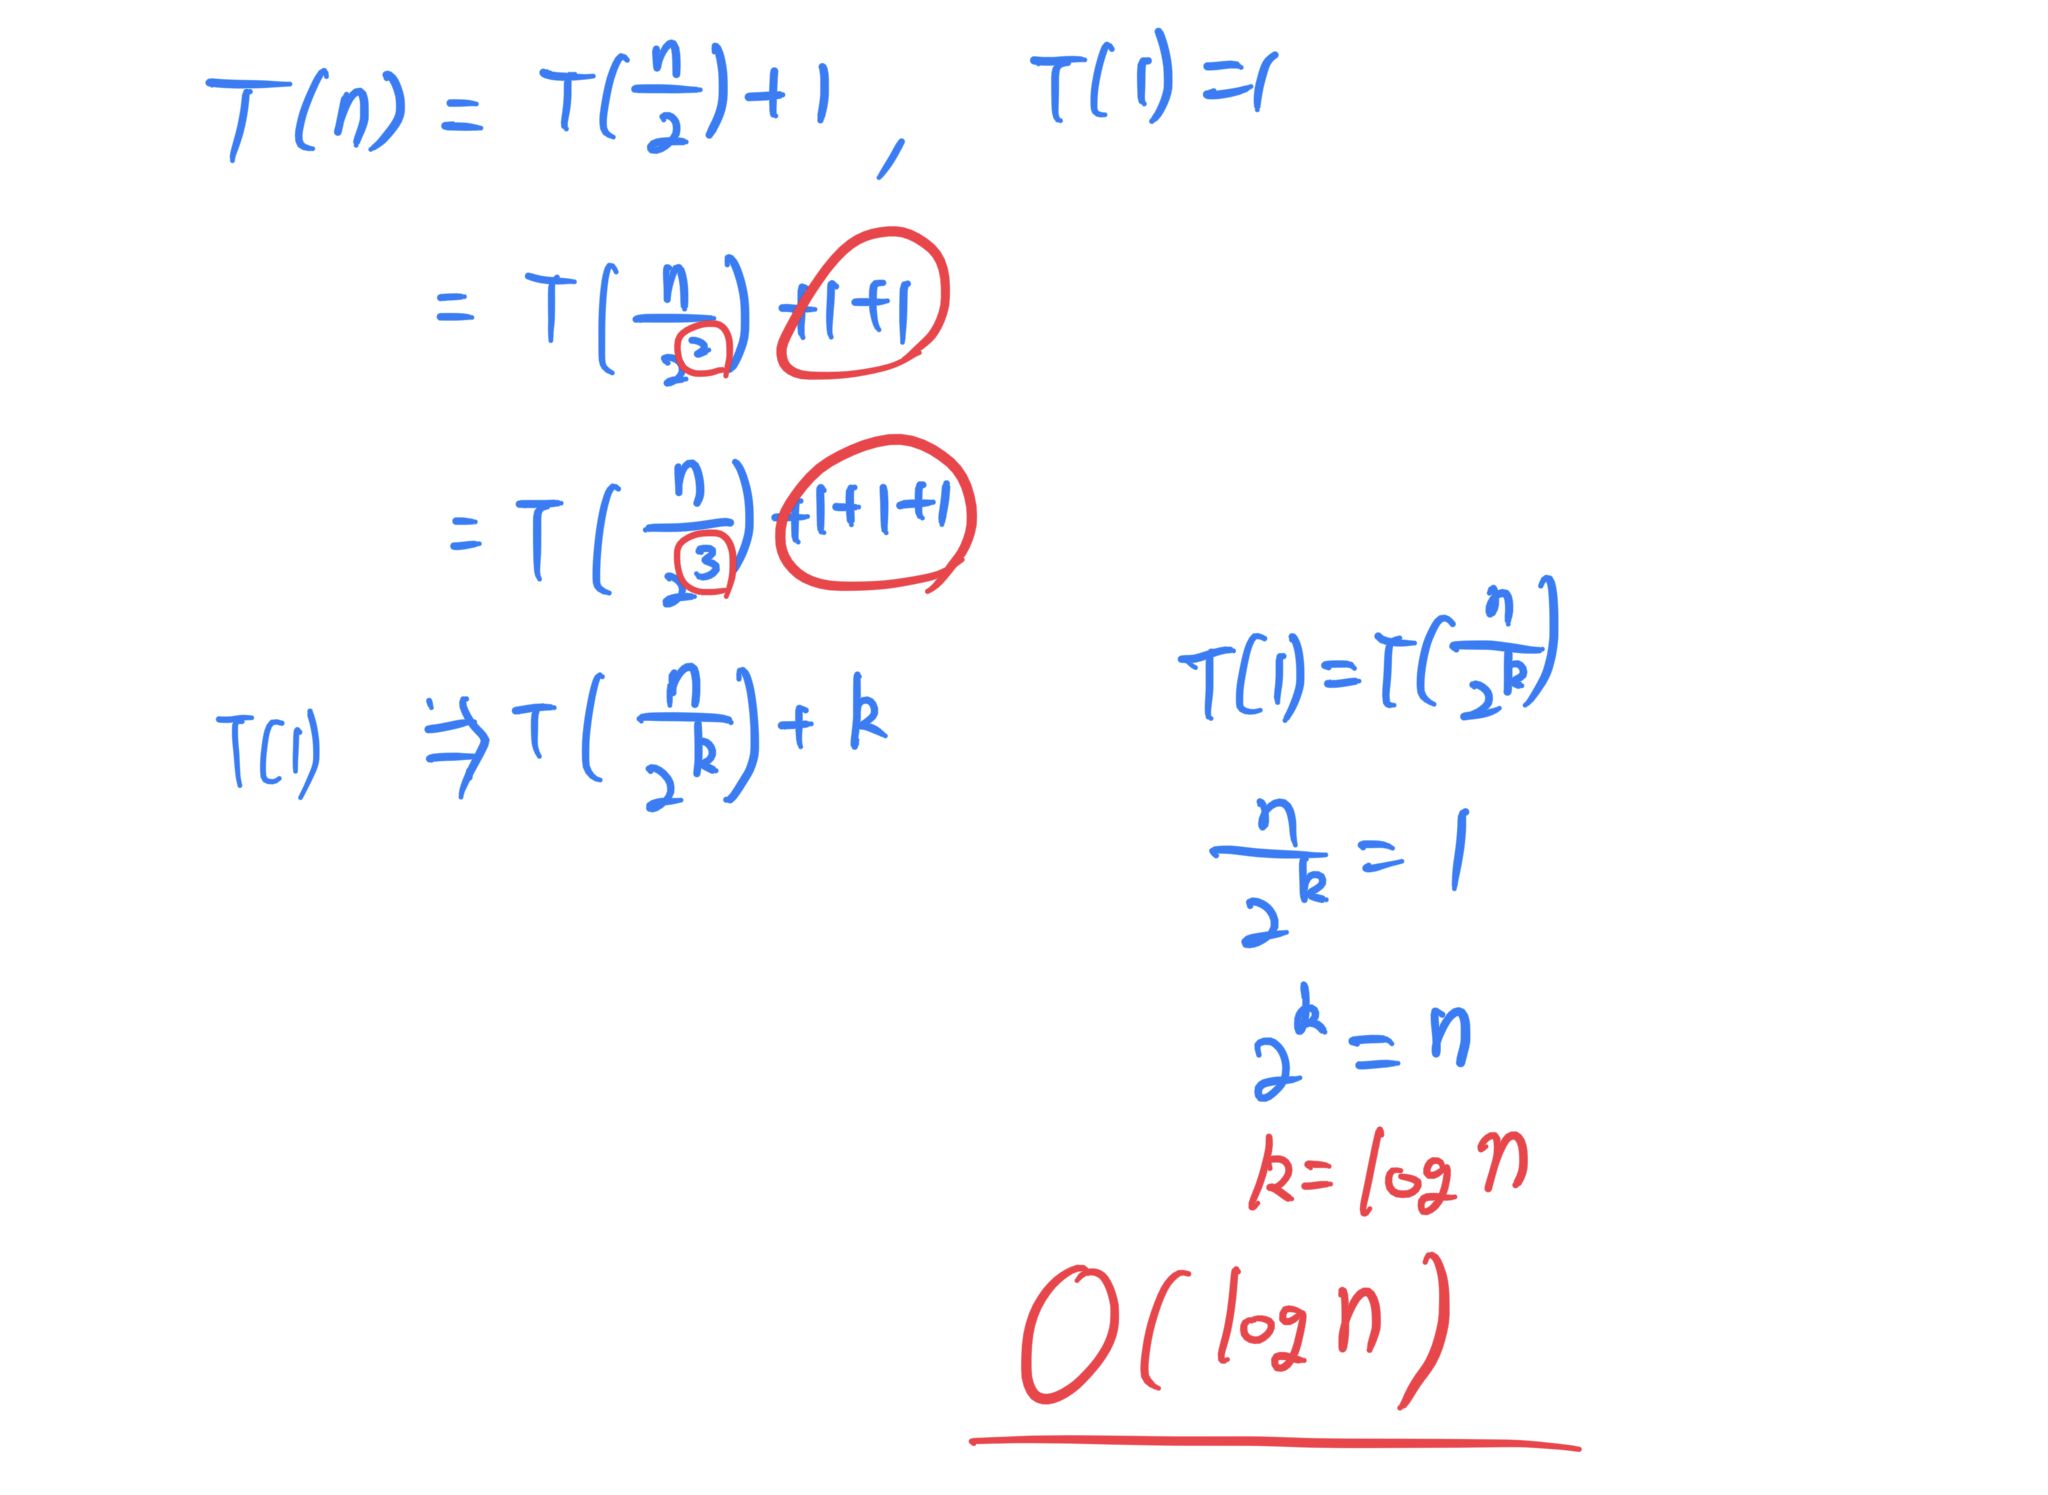 T(n) = T(n/2) + 1, T(1) = 1
= T(n/2^2) + 1 + 1
= T(n/2^3) + 1 + 1 + 1
T(1) ⇒ T(n/2^k) + k
T(1) = T(n/2^k)
n/2^k = 1
2^k = n
k = log n
O(log n)